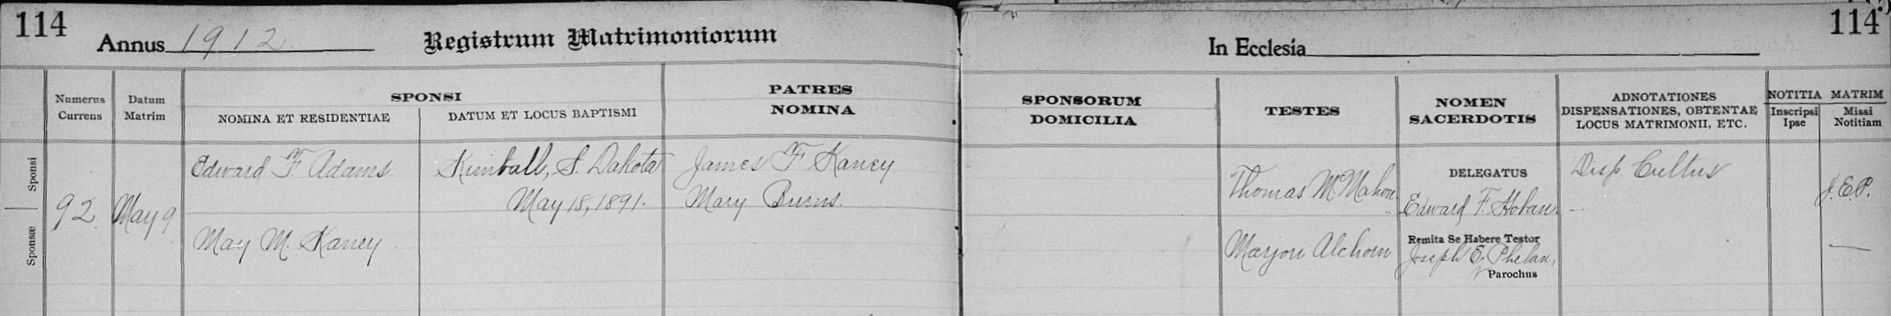 114
Annus 1912
Registrum Matrimoniorum
In Ecclesia
114
Numerus Currens
Datum Matrim
SPONSI
NOMINA ET RESIDENTIAE
DATUM ET LOCUS BAPTISMI
PATRES NOMINA
SPONSORUM DOMICILIA
TESTES
NOMEN SACERDOTIS
ADNOTATIONES
DISPENSATIONES, OBTENTAE
LOCUS MATRIMONII, ETC.
NOTITIA MATRIM
Inscripsi Ipse
Missi Notitiam
Sponsi
Sponsæ
92
May 9
Edward F Adams
May M. Kaney
Kimball, S. Dakota
May 18, 1891.
James F Kaney
Mary Burns.
Thomas McMahon
Marjori Alchorn
DELEGATUS
Edward F. Hoban
Remita Se Habere Testor
Joseph E. Phelan,
Parochus
Disp. Cultus
J.E.P.